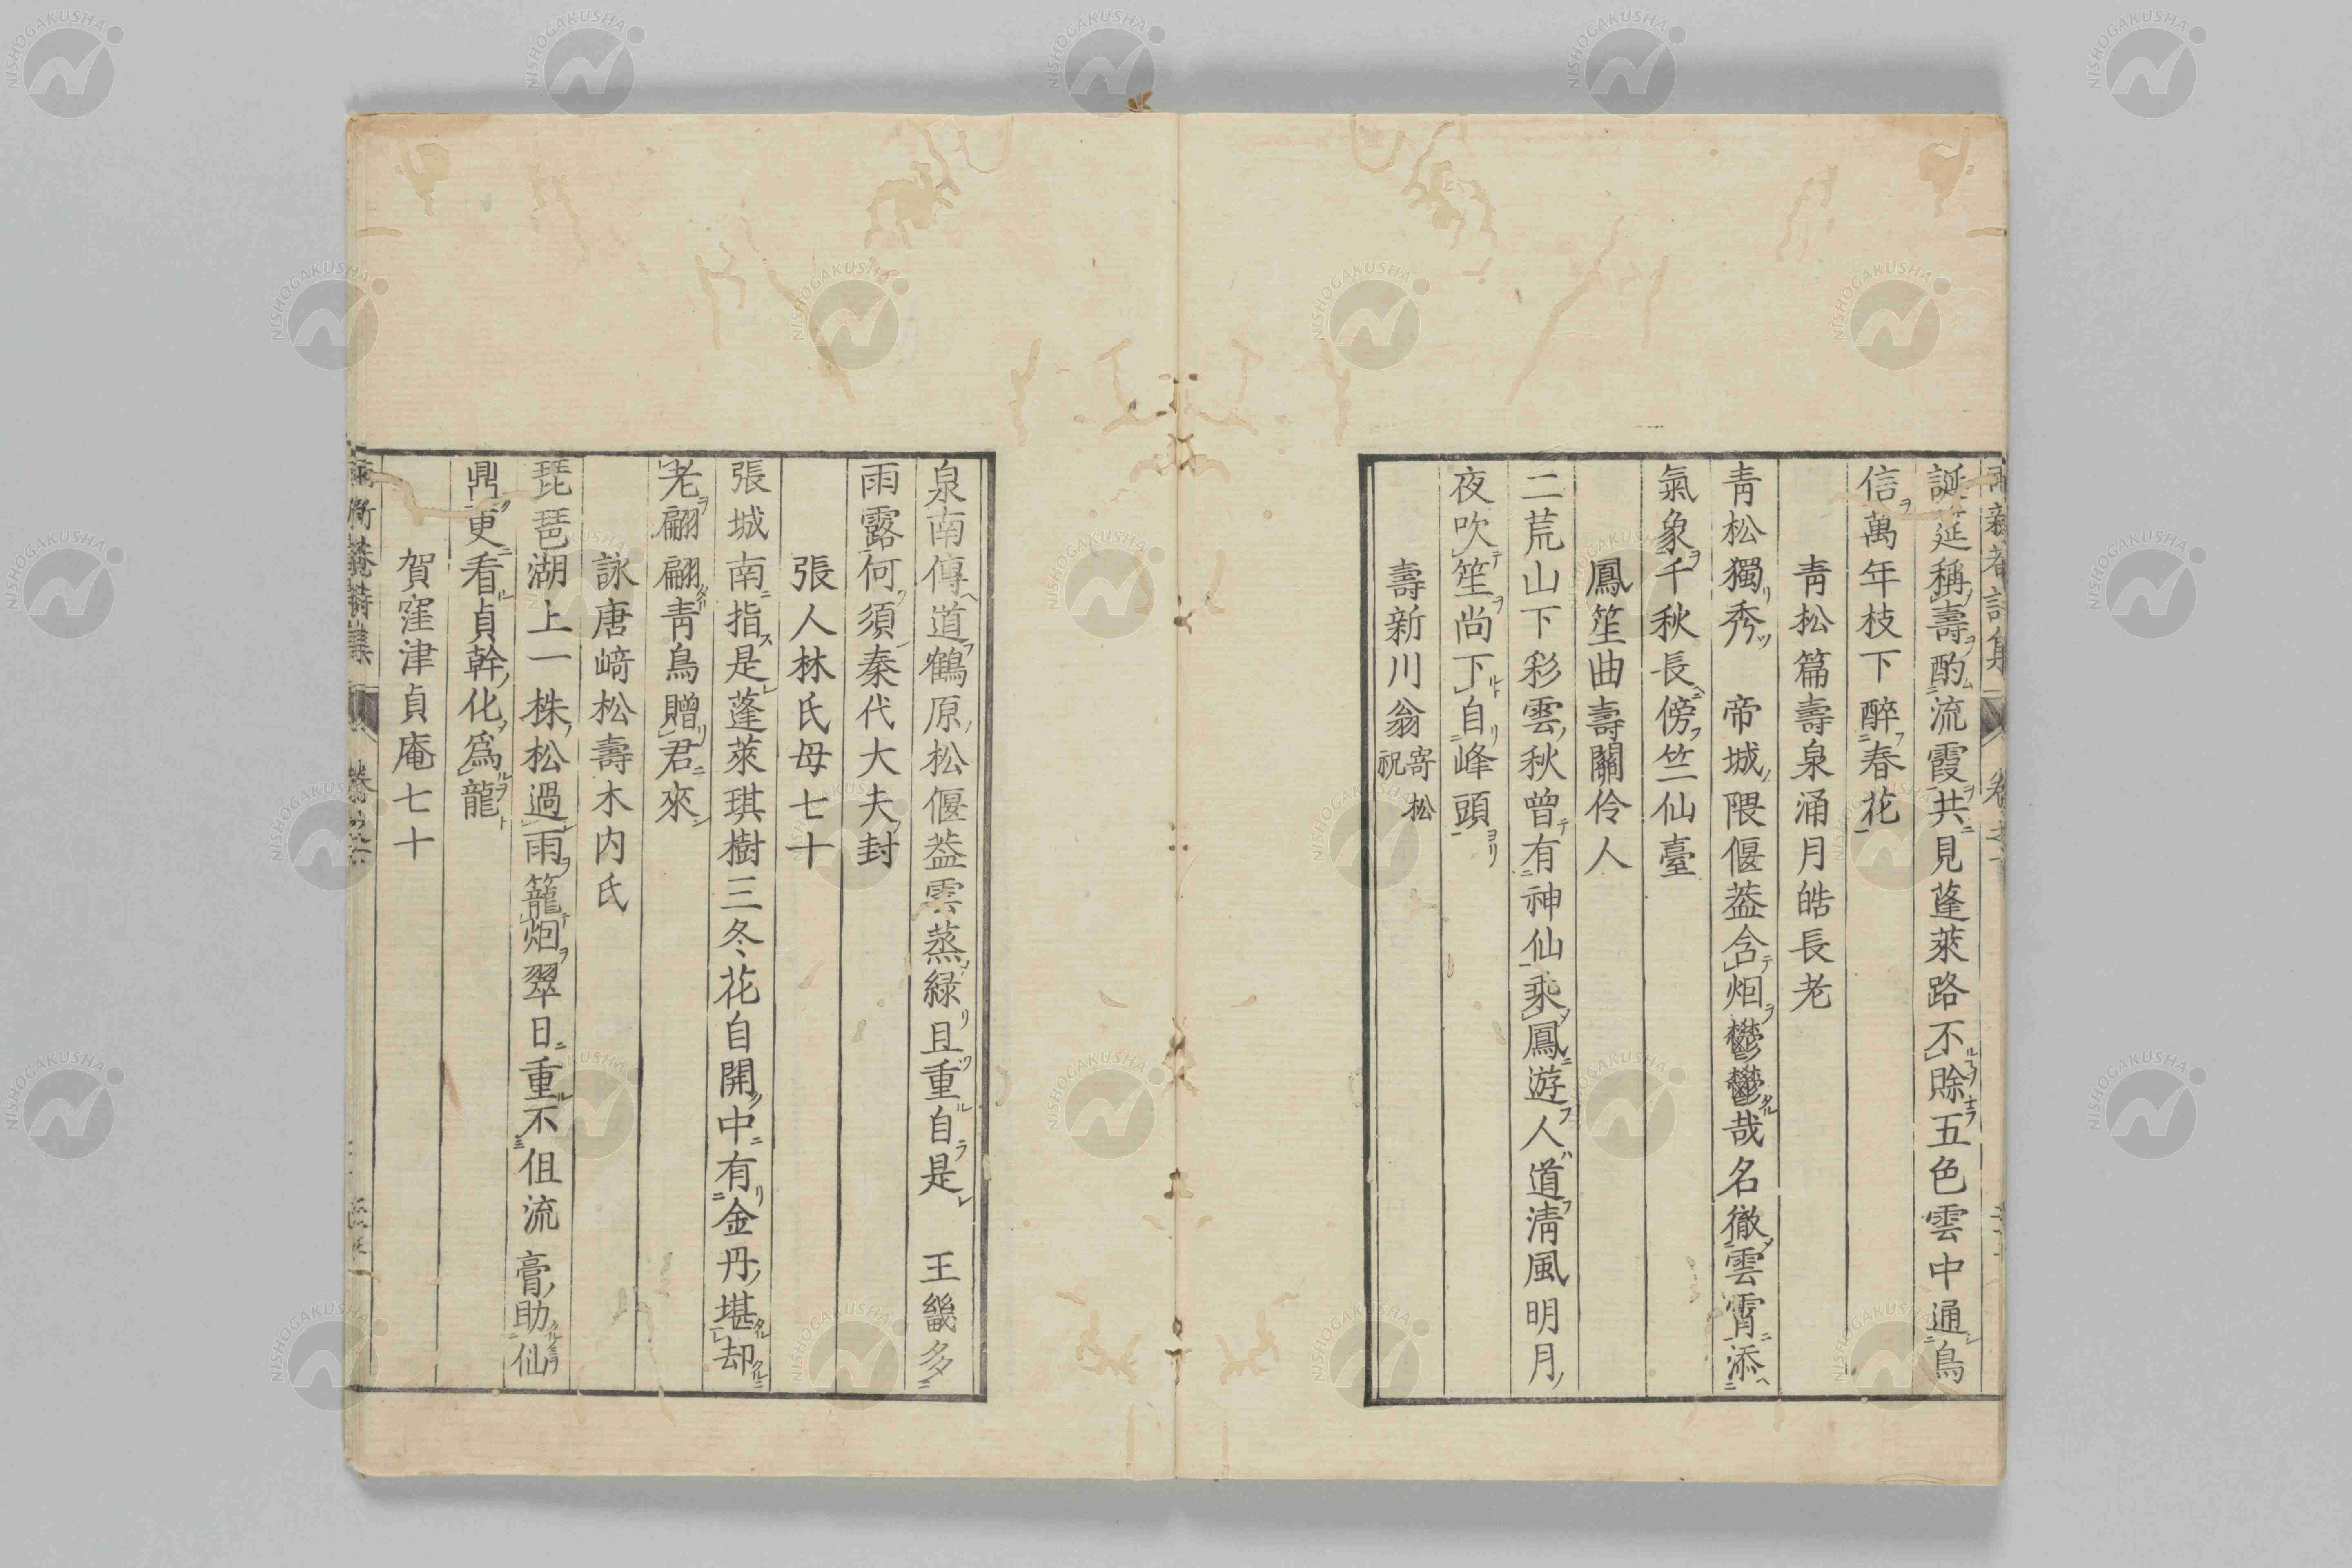 誕延稱壽酌流霞共見蓬萊路不賒五色雲中通鳥
信萬年枝下醉春花
青松篇壽泉涌月皓長老
青松獨秀　帝城隈偃葢含烟鬱鬱哉名徹雲霄添
氣象千秋長傍竺仙臺
鳳笙曲壽關伶人
二荒山下彩雲秋曾有神仙乘鳳遊人道清風明月
夜吹笙尚下自峰頭
壽新川翁寄松祝
泉南傳道鶴原松偃葢雲蒸綠且重自是　王畿多
雨露何須秦代大夫封
張人林氏母七十
張城南指是蓬萊琪樹三冬花自開中有金丹堪却
老翩翩青鳥贈君來
詠唐﨑松壽木内氏
琵琶湖上一株松過雨籠烟翠日重不但流膏助仙
鼎更看貞幹化爲龍
賀窪津貞庵七十
NISHOGAKUSHA